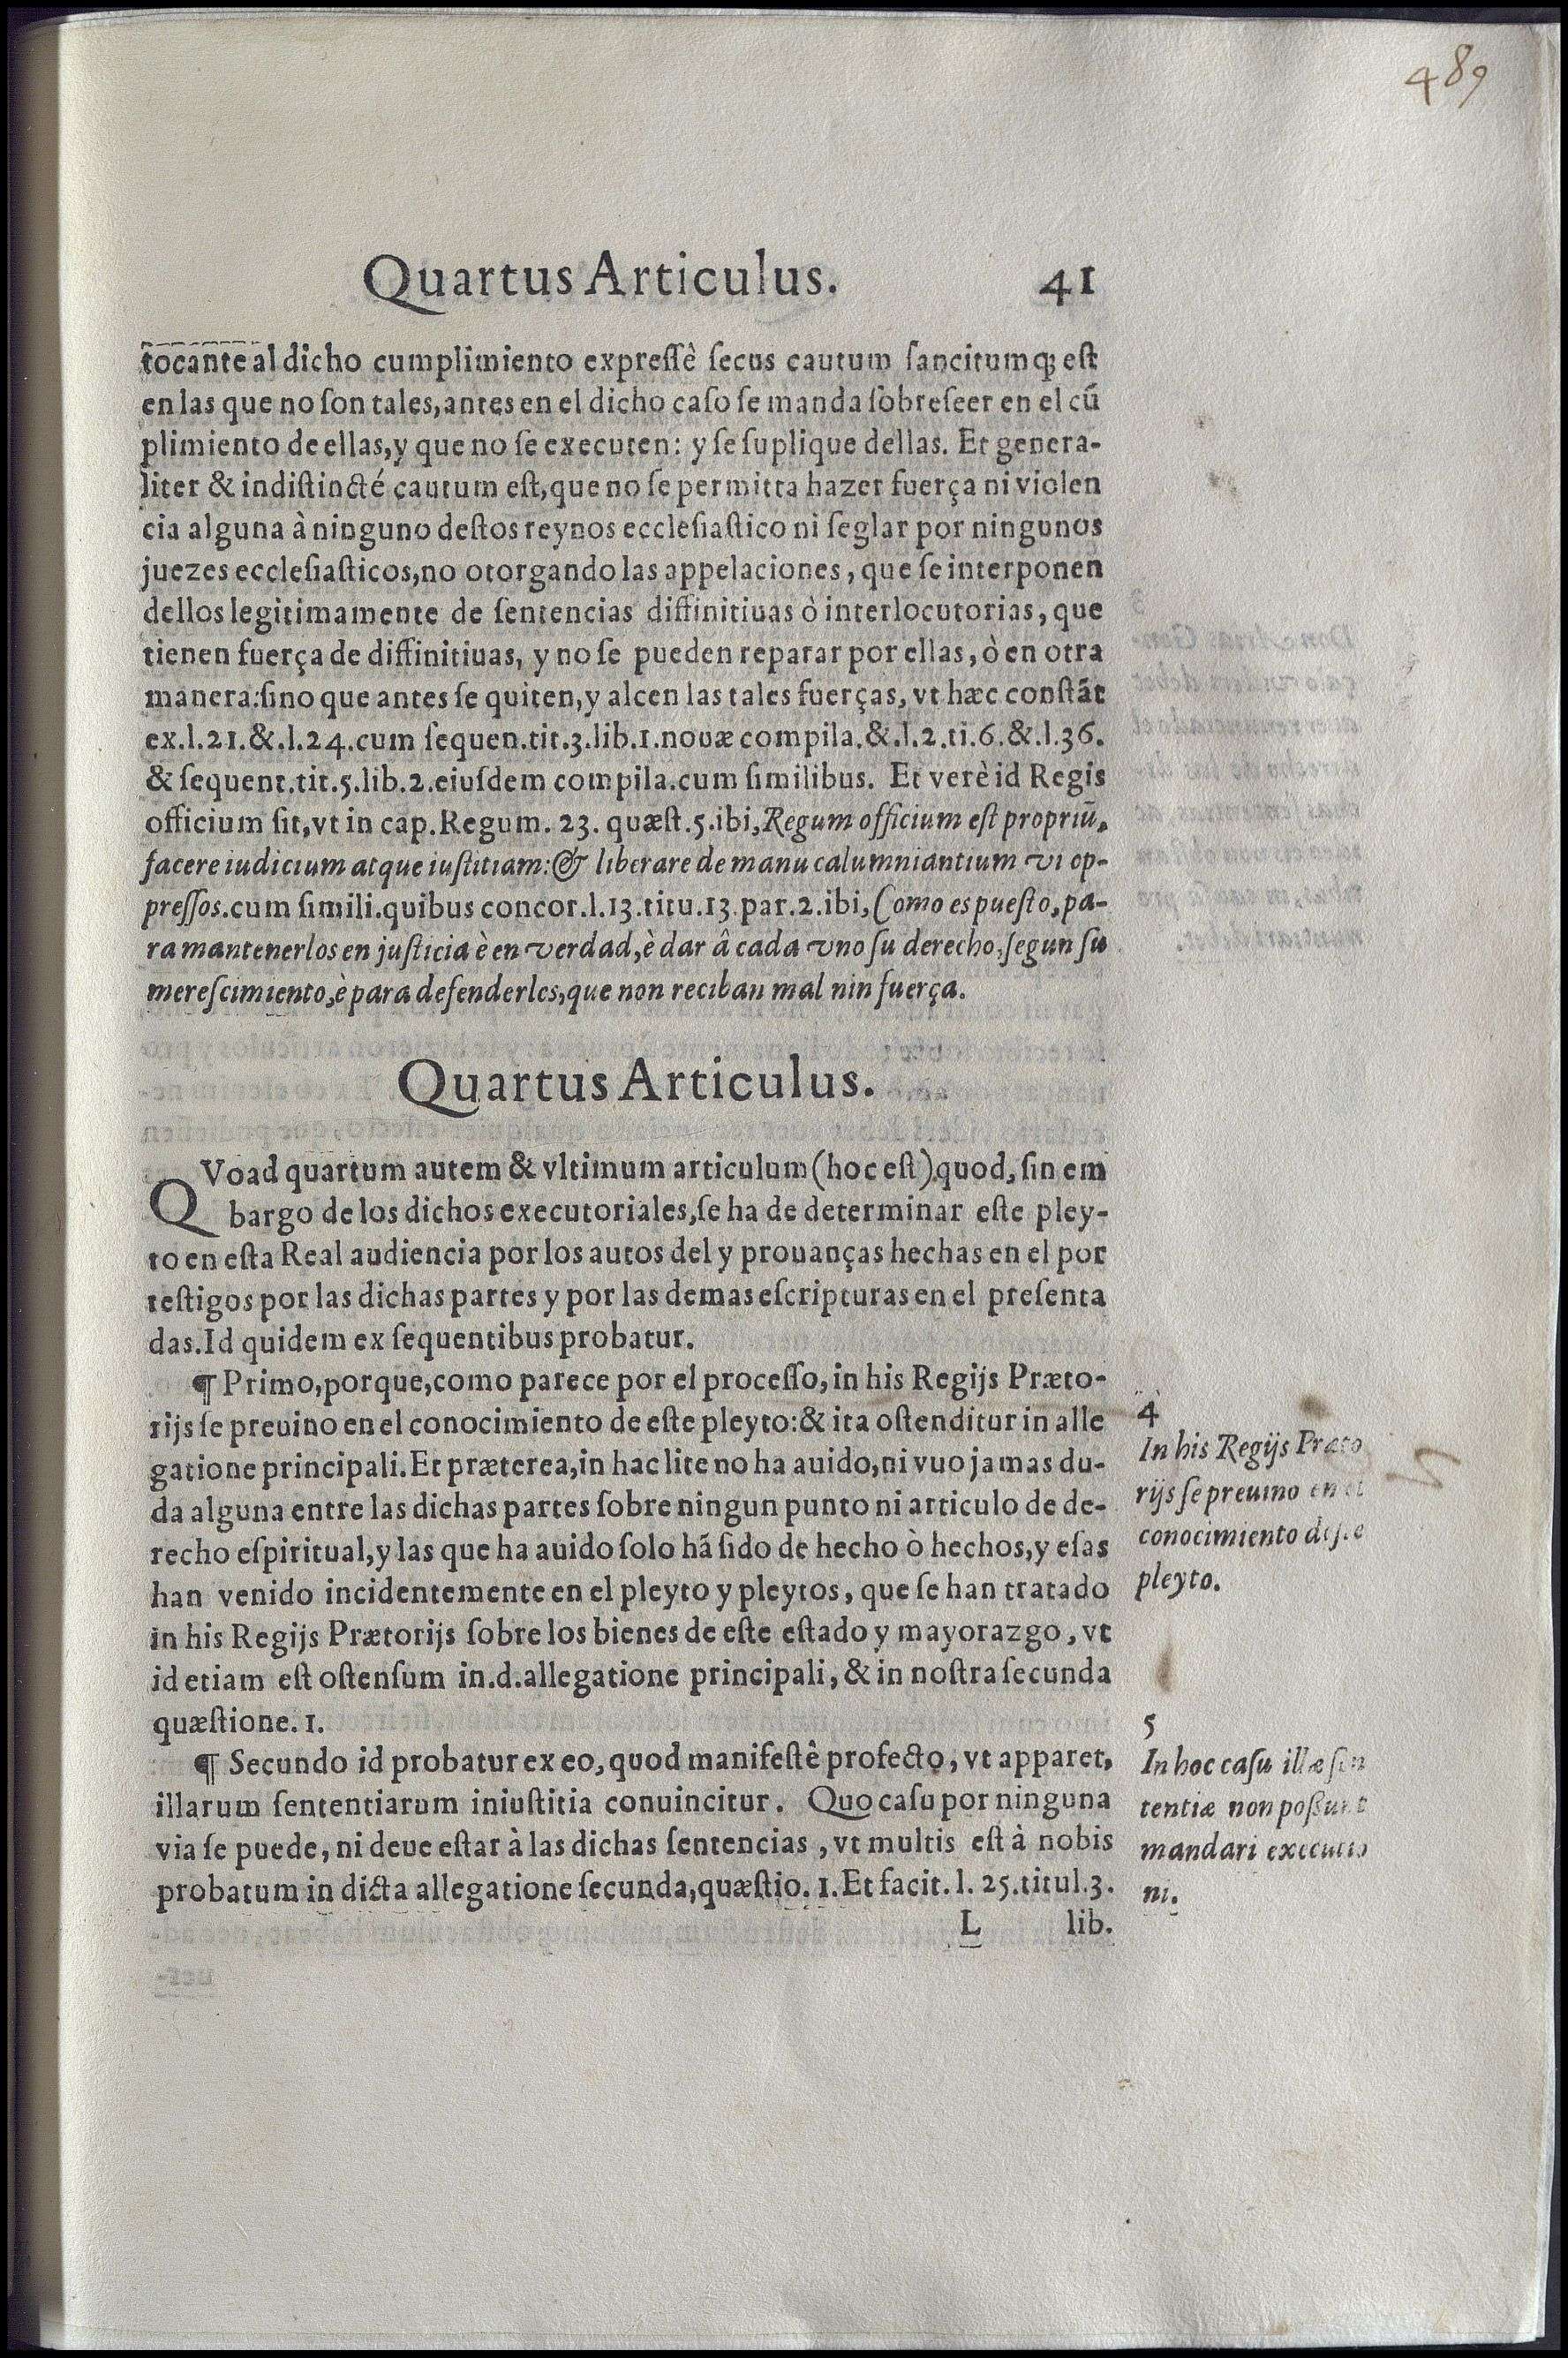 489
Quartus Articulus. 41
tocante al dicho cumplimiento expressè secus cautum sancitumq; est
en las que no son tales, antes en el dicho caso se manda sobreseer en el cũ
plimiento de ellas, y que no se executen: y se suplique dellas. Et genera-
liter & indistincté cautum est, que no se permitta hazer fuerça ni violen
cia alguna à ninguno destos reynos ecclesiastico ni seglar por ningunos
juezes ecclesiasticos, no otorgando las appelaciones, que se interponen
dellos legitimamente de sentencias diffinitiuas ò interlocutorias, que
tienen fuerça de diffinitiuas, y no se pueden reparar por ellas, ò en otra
manera: sino que antes se quiten, y alcen las tales fuerças, vt hæc constãt
ex.l.21.&.l.24.cum sequen.tit.3.lib.1.nouæ compila.&.l.2.ti.6.&.l.36.
& sequent.tit.5.lib.2.eiusdem compila.cum similibus. Et verè id Regis
officium sit, vt in cap. Regum. 23. quæst.5.ibi, Regum officium est propriũ,
facere iudicium atque iustitiam: & liberare de manu calumniantium vi op-
pressos. cum simili. quibus concor.l.13.titu.13.par.2.ibi, Como es puesto, pa-
ra mantenerlos en justicia è en verdad, è dar â cada vno su derecho, segun su
merescimiento, è para defenderles, que non reciban mal nin fuerça.
Quartus Articulus.
QVoad quartum autem & vltimum articulum (hoc est) quod, sin em
bargo de los dichos executoriales, se ha de determinar este pley-
to en esta Real audiencia por los autos del y prouanças hechas en el por
testigos por las dichas partes y por las demas escripturas en el presenta
das. Id quidem ex sequentibus probatur.
¶ Primo, porque, como parece por el processo, in his Regijs Præto-
rijs se preuino en el conocimiento de este pleyto: & ita ostenditur in alle
gatione principali. Et præterea, in hac lite no ha auido, ni vuo jamas du-
da alguna entre las dichas partes sobre ningun punto ni articulo de de-
recho espiritual, y las que ha auido solo hã sido de hecho ò hechos, y esas
han venido incidentemente en el pleyto y pleytos, que se han tratado
in his Regijs Prætorijs sobre los bienes de este estado y mayorazgo, vt
id etiam est ostensum in.d.allegatione principali, & in nostra secunda
quæstione. 1.
¶ Secundo id probatur ex eo, quod manifestê profecto, vt apparet,
illarum sententiarum iniustitia conuincitur. Quo casu por ninguna
via se puede, ni deue estar à las dichas sentencias, vt multis est à nobis
probatum in dicta allegatione secunda, quæstio. 1. Et facit. l. 25. titul.3.
L lib.
4
In his Regijs Præto
rijs se preuino en el
conocimiento deste
pleyto.
5
In hoc casu illæ sen
tentiæ non possunt
mandari executio
ni.